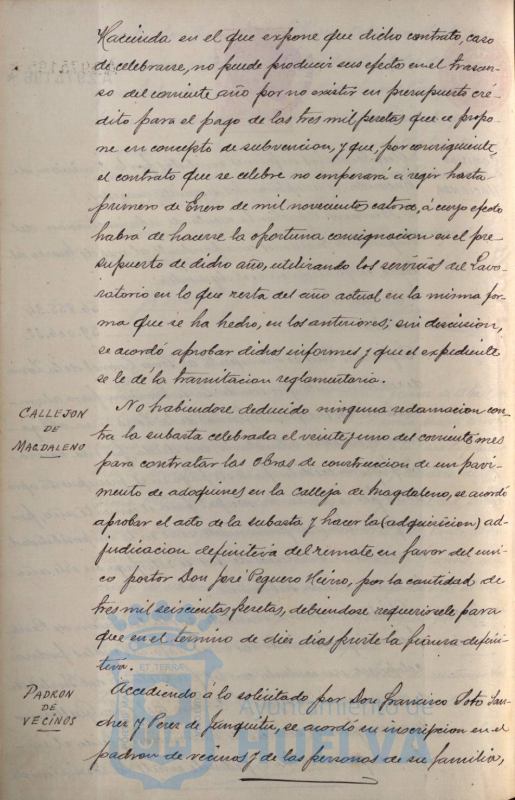 Hacienda en el que expone que dicho contrato, caso
de celebrarse, no puede producir sus efecto en el trascur-
so del corriente año por no existir en presupuesto cré-
dito para el pago de las tres mil pesetas que se propo-
ne en concepto de subvencion, y que, por consiguiente,
el contrato que se celebre no empezará á regir hasta
primero de Enero de mil novecientos catorce, á cuyo efecto
habrá de hacerse la oportuna consignacion en el pre-
supuesto de dicho año, utilizando los servicios del Lavo-
ratorio en lo que resta del año actual en la misma for-
ma que se ha hecho, en los anteriores; sin discusion,
se acordó aprobar dichos informes y que el expediente
se le dé la tramitacion reglamentaria.
CALLEJON
DE
MAGDALENO
No habiendose deducido ninguna reclamacion con-
tra la subasta celebrada el veinte y uno del corriente mes
para contratar las obras de construccion de un pavi-
mento de adoquines en la calleja de Magdaleno, se acordó
aprobar el acto de la subasta y hacer la (adquisicion) ad-
judicacion definitiva del remate en favor del uni-
co postor Don José Peguero Hierro, por la cantidad de
tres mil seiscientas pesetas, debiendose requerirsele para
que en el termino de diez dias preste la fianza defini-
tiva.
PADRON
DE
VECINOS
Accediendo á lo solicitado por Don Francisco Soto San-
chez y Perez de Junquitu, se acordó su inscripcion en el
padron de vecinos y de las personas de su familia,
Ayuntamiento de
HUELVA